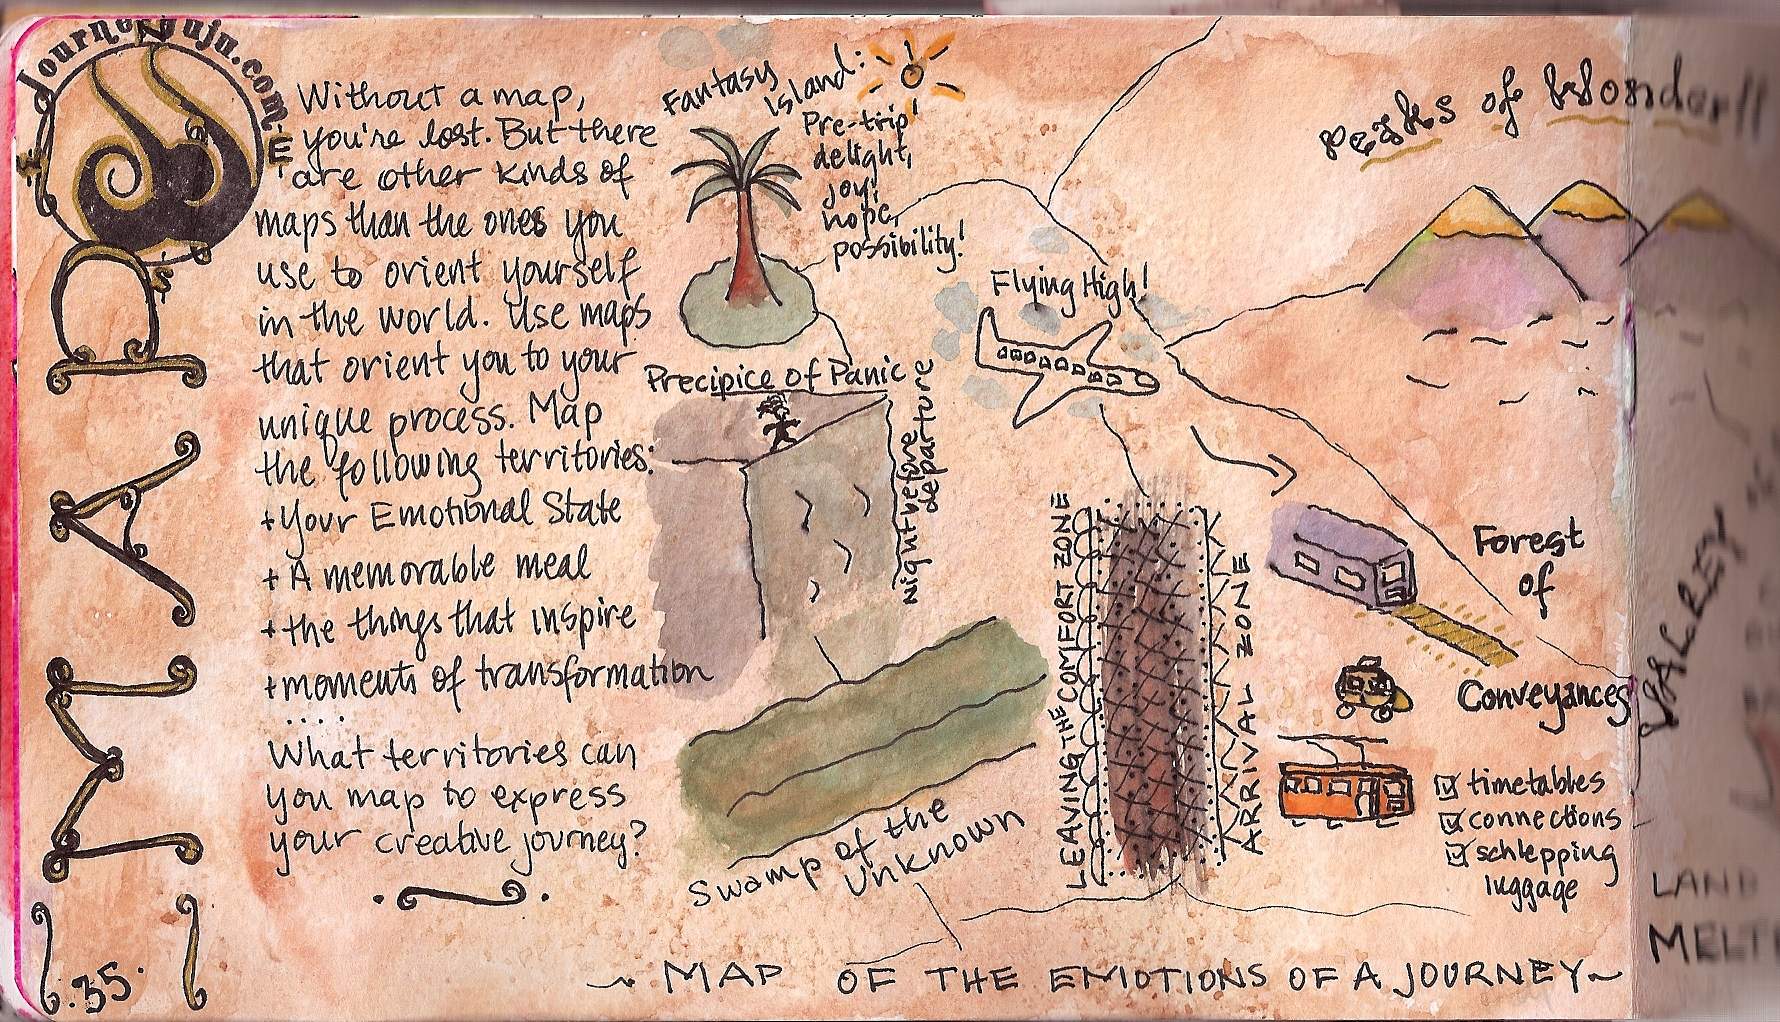 JourneyJuju.com
MAP
Without a map,
you're lost. But there
are other kinds of
maps than the ones you
use to orient yourself
in the world. Use maps
that orient you to your
unique process. Map
the following territories:
+ Your Emotional State
+ A memorable meal
+ the things that inspire
+ moments of transformation
....
What territories can
you map to express
your creative journey?
.35.
Fantasy
Island:
Pre-trip
delight,
joy!
hope,
possibility!
Precipice of Panic
Night before
departure
Swamp of the
Unknown
Flying High!
LEAVING THE COMFORT ZONE
ARRIVAL ZONE
Peaks of Wonder!!
Forest
of
Conveyances
☑ timetables
☑ connections
☑ schlepping
luggage
VALLEY
LAND
~ MAP OF THE EMOTIONS OF A JOURNEY ~